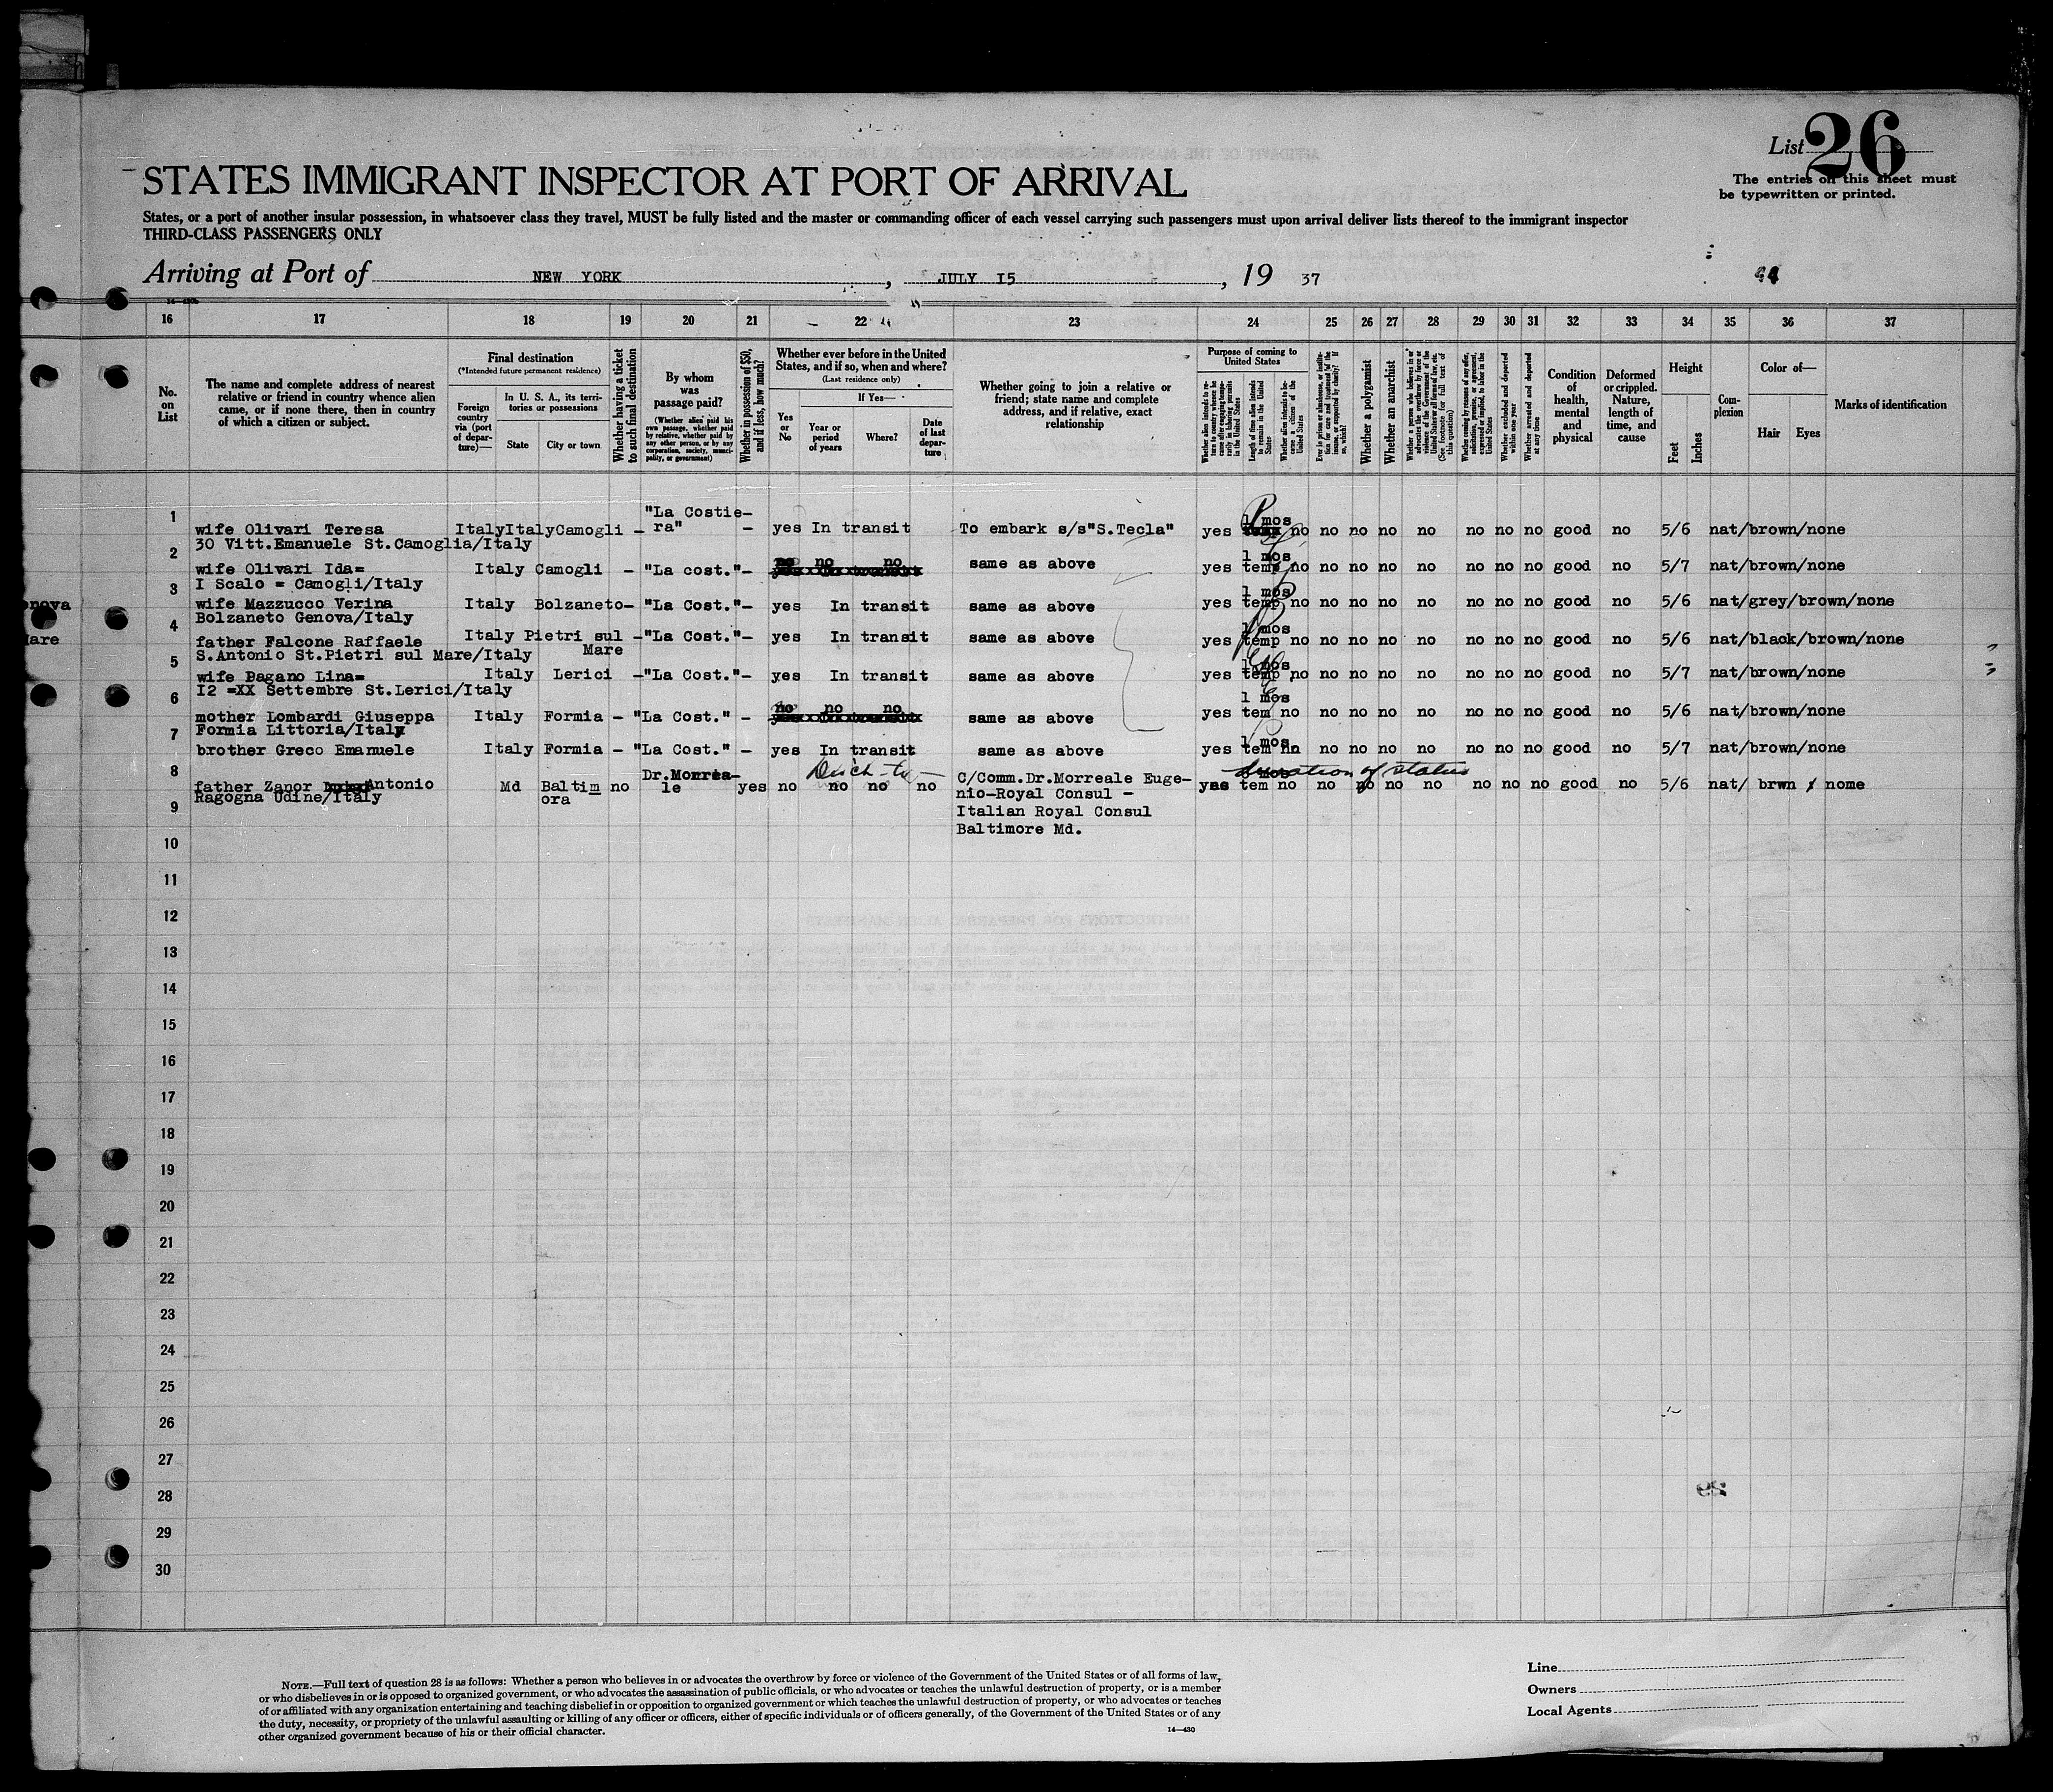 List 26
The entries on this sheet must
be typewritten or printed.
STATES IMMIGRANT INSPECTOR AT PORT OF ARRIVAL
States, or a port of another insular possession, in whatsoever class they travel, MUST be fully listed and the master or commanding officer of each vessel carrying such passengers must upon arrival deliver lists thereof to the immigrant inspector
THIRD-CLASS PASSENGERS ONLY
Arriving at Port of NEW YORK, JULY 15, 19 37
16 17 18 19 20 21 22 23 24 25 26 27 28 29 30 31 32 33 34 35 36 37
No. on List
The name and complete address of nearest
relative or friend in country whence alien
came, or if none there, then in country
of which a citizen or subject.
Final destination
(*Intended future permanent residence)
Foreign country via (port of departure)—
In U. S. A., its territories or possessions
State
City or town
Whether having a ticket to such final destination
By whom was passage paid?
(Whether alien paid his own passage, whether paid by relative, whether paid by any other person, or by any corporation, society, municipality, or government)
Whether in possession of $50, and if less, how much?
Whether ever before in the United States, and if so, when and where?
(Last residence only)
Yes or No
If Yes—
Year or period of years
Where?
Date of last departure
Whether going to join a relative or
friend; state name and complete
address, and if relative, exact
relationship
Purpose of coming to United States
Whether alien intends to return to country whence he came after engaging temporarily in laboring pursuits in the United States
Length of time alien intends to remain in the United States
Whether alien intends to become a citizen of the United States
Whether a polygamist
Whether an anarchist
Whether excluded and deported within one year
Whether arrested and deported at any time
Condition of health, mental and physical
Deformed or crippled. Nature, length of time, and cause
Height
Feet
Inches
Complexion
Color of—
Hair
Eyes
Marks of identification
1 wife Olivari Teresa ItalyItalyCamogli - "La Costie-ra" - yes In transit To embark s/s"S.Tecla" yes 1 mos no no no no no no no no good no 5/6 nat/brown/none
30 Vitt.Emanuele St.Camoglia/Italy
2 wife Olivari Ida= Italy Camogli - "La cost."- no no no same as above yes 1 mos temp no no no no no no no no good no 5/7 nat/brown/none
I Scalo = Camogli/Italy
3 wife Mazzucco Verina Italy Bolzaneto- "La Cost."- yes In transit same as above yes 1 mos temp no no no no no no no no good no 5/6 nat/grey/brown/none
Bolzaneto Genova/Italy
4 father Falcone Raffaele Italy Pietri sul Mare -"La Cost."- yes In transit same as above yes 1 mos temp no no no no no no no no good no 5/6 nat/black/brown/none
S.Antonio St.Pietri sul Mare/Italy
5 wife Pagano Lina= Italy Lerici -"La Cost."- yes In transit same as above yes 1 mos temp no no no no no no no no good no 5/7 nat/brown/none
I2 =XX Settembre St.Lerici/Italy
6 mother Lombardi Giuseppa Italy Formia - "La Cost." - no no no same as above yes 1 mos tem no no no no no no no no good no 5/6 nat/brown/none
Formia Littoria/Italy
7 brother Greco Emanuele Italy Formia - "La Cost." - yes In transit same as above yes 1 mos tem no no no no no no no good no 5/7 nat/brown/none
8 father Zanor Antonio Md Baltim ora no Dr.Morrea-le yes no no no no C/Comm.Dr.Morreale Euge- yes tem no no no no no no no no good no 5/6 nat/ brwn / nome
duration of status
Ragogna Udine/Italy
nio-Royal Consul -
9 Italian Royal Consul
Baltimore Md.
10
11
12
13
14
15
16
17
18
19
20
21
22
23
24
25
26
27
28
29
30
NOTE.—Full text of question 28 is as follows: Whether a person who believes in or advocates the overthrow by force or violence of the Government of the United States or of all forms of law,
or who disbelieves in or is opposed to organized government, or who advocates the assassination of public officials, or who advocates or teaches the unlawful destruction of property, or is a member
of or affiliated with any organization entertaining and teaching disbelief in or opposition to organized government or which teaches the unlawful destruction of property, or who advocates or teaches
the duty, necessity, or propriety of the unlawful assaulting or killing of any officer or officers, either of specific individuals or of officers generally, of the Government of the United States or of any
other organized government because of his or their official character.
14—430
Line
Owners
Local Agents